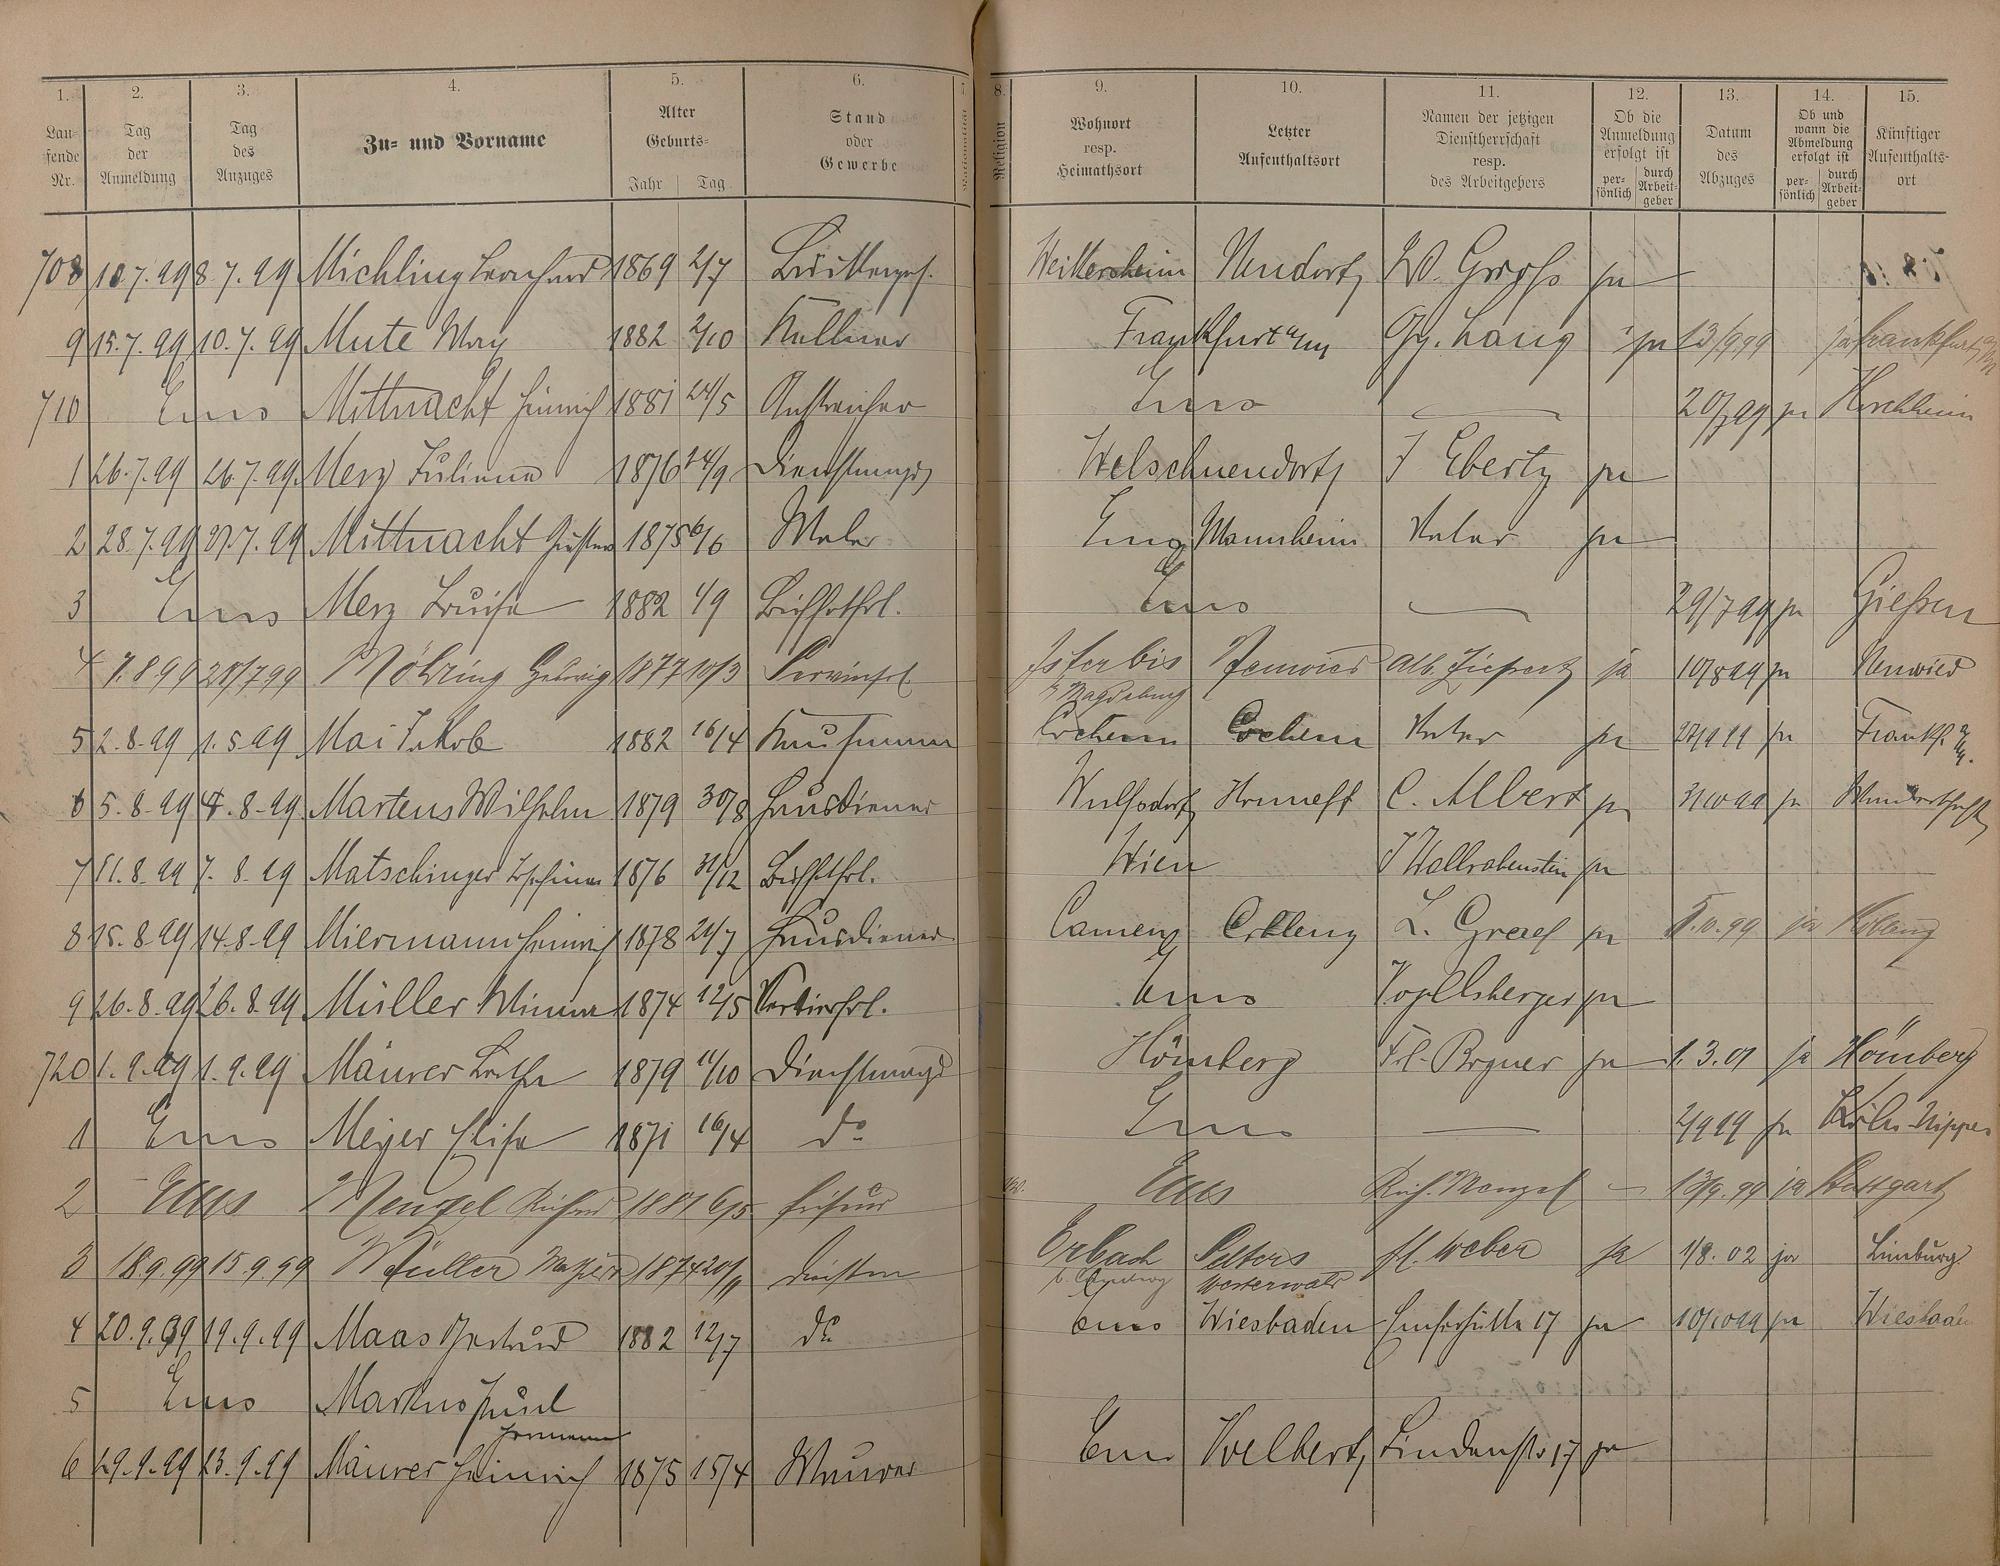 1. 2. 3. 4. 5. 6. 7. 8. 9. 10. 11. 12. 13. 14. 15.
Lau-fende Nr. Tag der Anmeldung Tag des Anzuges Zu- und Vorname Alter Geburts- Jahr Tag Stand oder Gewerbe Nationalität Religion Wohnort resp. Heimathsort Letzter Aufenthaltsort Namen der jetzigen Dienstherrschaft resp. des Arbeitgebers Ob die Anmeldung erfolgt ist per-sönlich durch Arbeit-geber Datum des Abzuges Ob und wann die Abmeldung erfolgt ist per-sönlich durch Arbeit-geber Künftiger Aufenthalts-ort
708 10.7.99 8.7.99 Michling Leonhard 1869 2/7 Weikersheim Nendorf W. ja
9 15.7.99 10.7.99 Mute Max 1882 2/10 Kellner Frankfurt a/m Gg. Lang ja 13/9 99 ja Frankfurt a/m
710 Ems Mittnacht Heinrich 1881 24/5 Anstreicher Ems — 20/7 99 ja Kirchheim
1 26.7.99 26.7.99 Merz Juliana 1876 24/9 Dienstmagd Welschneudorf J Ebertz ja
2 28.7.99 27.7.99 Mittnacht Gustav 1875 6/6 Maler Ems Mannheim Vater ja
3 Ems Merz Luise 1882 1/9 Büffetfrl. Ems — 29/7 99 ja Gießen
4 7.8 99 28/7 99 Möhring Hedwig 1877 10/3 Isterbis Neuwied Alb. ja 10/8 99 ja Neuwied
b/ Magdeburg
5 2.8.99 1.5.99 Mai Jakob 1882 16/4 Kaufmann Cochem Cochem Vater ja ja Frankf. a/M.
6 5.8.99 4.8.99 Martens Wilhelm 1879 30/8 Hausdiener Wulfsdorf Honneff C. Albert ja 31/10 99 ja Wanderschaft
7 11.8.99 7.8.99 Matschinger Josefine 1876 31/12 Büffetfrl. Wien J Wallrabenstein ja
8 15.8.99 14.8.99 Miermann Heinrich 1878 21/7 Hausdiener Camenz Coblenz L. Graef ja 1.10.99 ja Koblenz
9 26.8.99 26.8.99 Müller Minna 1874 12/5 Servierfrl. Ems Vogelsberger ja
720 1.9.99 1.9.99 Mäurer Käthe 1879 11/10 Dienstmagd Hömberg Frl. ja 1.3.01 ja Hömberg
1 Ems Meyer Elise 1871 16/4 do Ems — 2/9 99 ja Köln-Nippes
2 Ems Menzel Richard 1881 6/5 Friseur Ems Rich. Menzel — 13/9.99 ja Stuttgart
3 18.9.99 15.9.99 Müller 1874 20/11 Erbach Selters Fl. Weber ja 1/8.02 ja Limburg
b. Camberg Westerwald
4 20.9.99 19.9.99 Maas Gertrud 1882 12/7 do Ems Wiesbaden Emserhütte 17 ja 10/10 99 ja Wiesbaden
5 Ems Markus
Hermann
6 29.9.99 23.9.99 Mäurer Heinrich 1875 15/4 Maurer Ems Velbert Lindenstr 17 ja